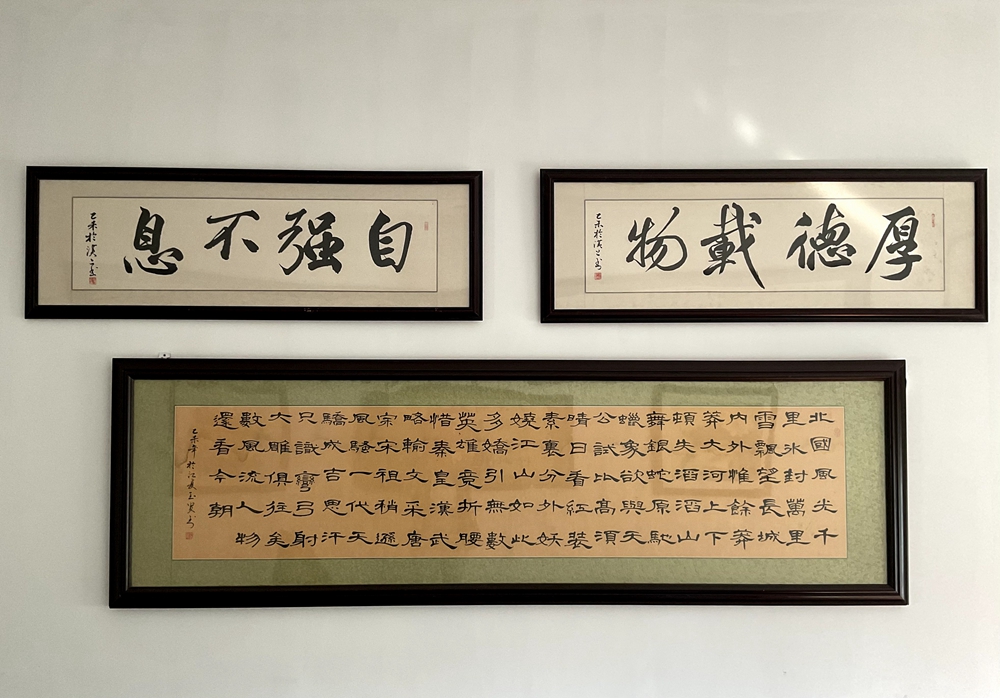 自强不息
乙未於漢上書
厚德載物
乙未於漢上書
北國風光千
里冰封萬里
雪飄望長城
内外惟餘莽
莽大河上下
頓失滔滔山
舞銀蛇原馳
蠟象欲與天
公試比高須
晴日看紅裝
素裹分外妖
嬈江山如此
多嬌引無數
英雄竟折腰
惜秦皇漢武
略輸文采唐
宗宋祖稍遜
風騷一代天
驕成吉思汗
只識彎弓射
大雕俱往矣
數風流人物
還看今朝
乙未年於江